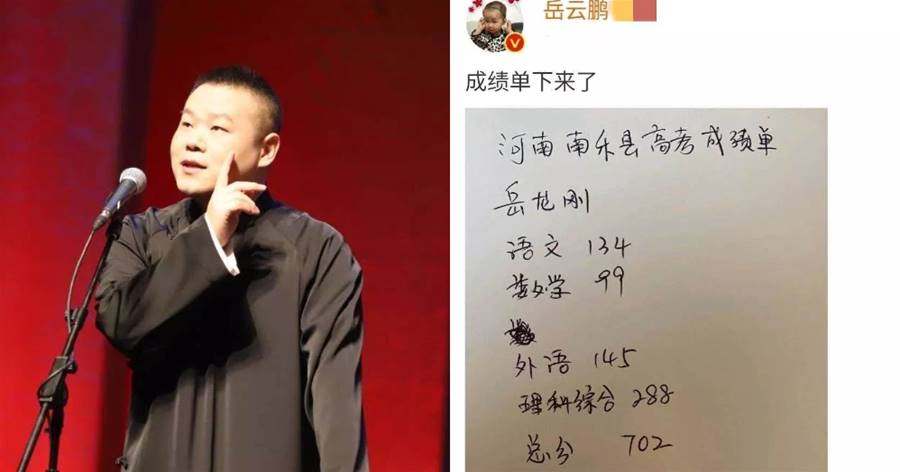 岳云鹏
成绩单下来了
河南南乐县高考成绩单
岳龙刚
语文 134
数学 99
外语 145
理科综合 288
总分 702